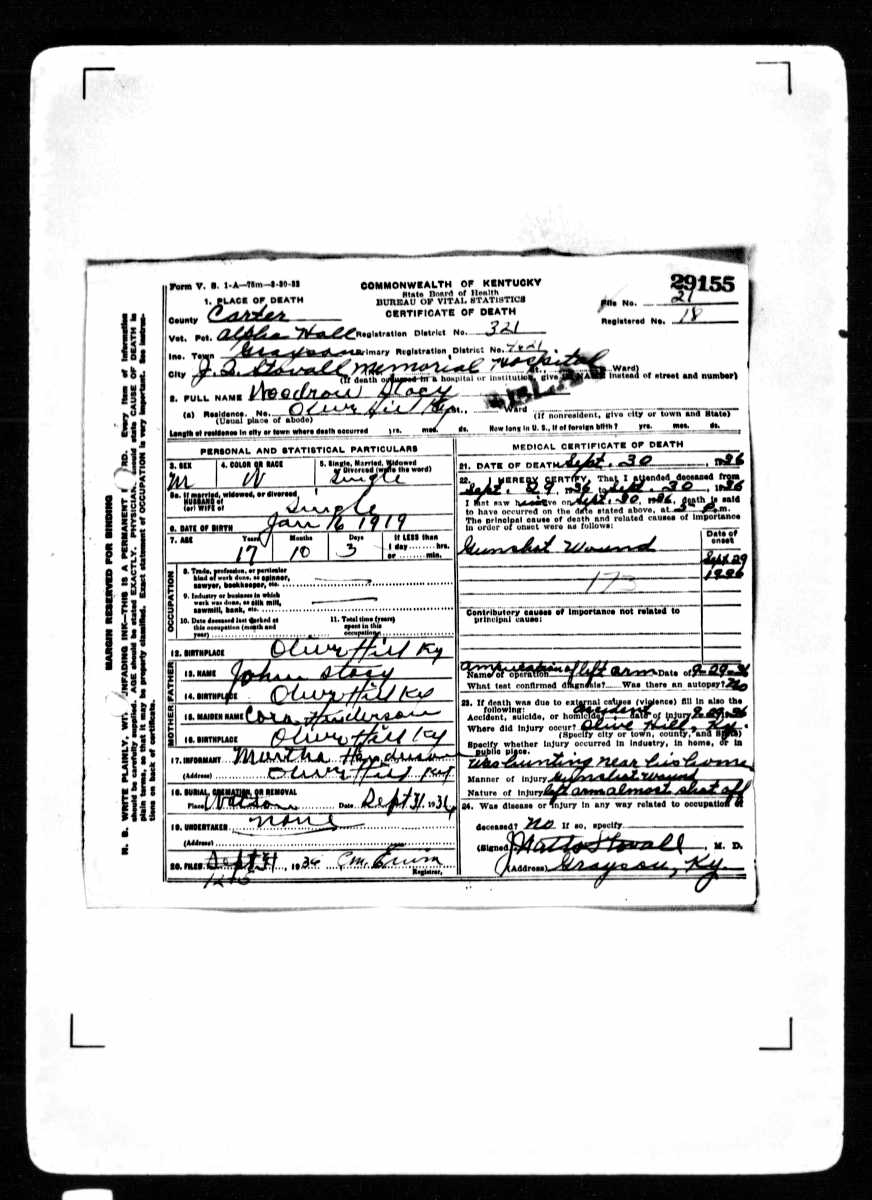 29155
Form V. S. 1-A—75m—8-30-32
COMMONWEALTH OF KENTUCKY
State Board of Health
BUREAU OF VITAL STATISTICS
CERTIFICATE OF DEATH
File No. 21
Registered No. 18
1. PLACE OF DEATH
County Carter
Vot. Pct. Alpha Hall Registration District No. 321
Inc. Town Grayson Primary Registration District No. 7421
City J. Q. Stovall Memorial Hospital St., Ward)
(If death occurred in a hospital or institution, give its NAME instead of street and number)
2. FULL NAME Woodrow Stacy
(a) Residence. No. Olive Hill Ky St., Ward
(Usual place of abode) (If nonresident, give city or town and State)
Length of residence in city or town where death occurred yrs. mos. ds. How long in U. S., if of foreign birth? yrs. mos. ds.
PERSONAL AND STATISTICAL PARTICULARS
3. SEX M
4. COLOR OR RACE W
5. Single, Married, Widowed Divorced (write the word) Single
5a. If married, widowed, or divorced
HUSBAND of
(or) WIFE of Single
6. DATE OF BIRTH Jan 16 1919
7. AGE Years 17 Months 10 Days 3 If LESS than 1 day hrs. or min.
OCCUPATION
8. Trade, profession, or particular
kind of work done, as spinner,
sawyer, bookkeeper, etc.
9. Industry or business in which
work was done, as silk mill,
sawmill, bank, etc.
10. Date deceased last worked at
this occupation (month and
year)
11. Total time (years)
spent in this
occupation
12. BIRTHPLACE Olive Hill Ky
FATHER
13. NAME John Stacy
14. BIRTHPLACE Olive Hill Ky
MOTHER
15. MAIDEN NAME Cora Henderson
16. BIRTHPLACE Olive Hill Ky
17. INFORMANT Martha Henderson
(Address) Olive Hill Ky
18. BURIAL, CREMATION, OR REMOVAL
Place Watson Date Sept 31, 1936
19. UNDERTAKER none
(Address)
20. FILED Sept 31, 1936 Registrar.
MEDICAL CERTIFICATE OF DEATH
21. DATE OF DEATH Sept. 30, 1936
22. I HEREBY CERTIFY, That I attended deceased from
Sept. 29, 1936 to Sept. 30, 1936
I last saw him alive on Sept. 30, 1936, death is said
to have occurred on the date stated above, at 3 P.m.
The principal cause of death and related causes of importance
in order of onset were as follows:
Date of onset
Gunshot Wound
Sept 29
1936
173
Contributory causes of importance not related to
principal cause:
Amputation of left arm
Name of operation Date of 9-29-36
What test confirmed diagnosis? Was there an autopsy? No
23. If death was due to external causes (violence) fill in also the
following:
Accident, suicide, or homicide? accident date of injury 9-29-36
Where did injury occur? Olive Hill, Ky.
(Specify city or town, county, and State)
Specify whether injury occurred in industry, in home, or in
public place.
Was hunting near his home
Manner of injury Gunshot wound
Nature of injury left arm almost shot off
24. Was disease or injury in any way related to occupation of
deceased? No If so, specify
(Signed) J Watts Stovall, M. D.
(Address) Grayson, Ky.
MARGIN RESERVED FOR BINDING